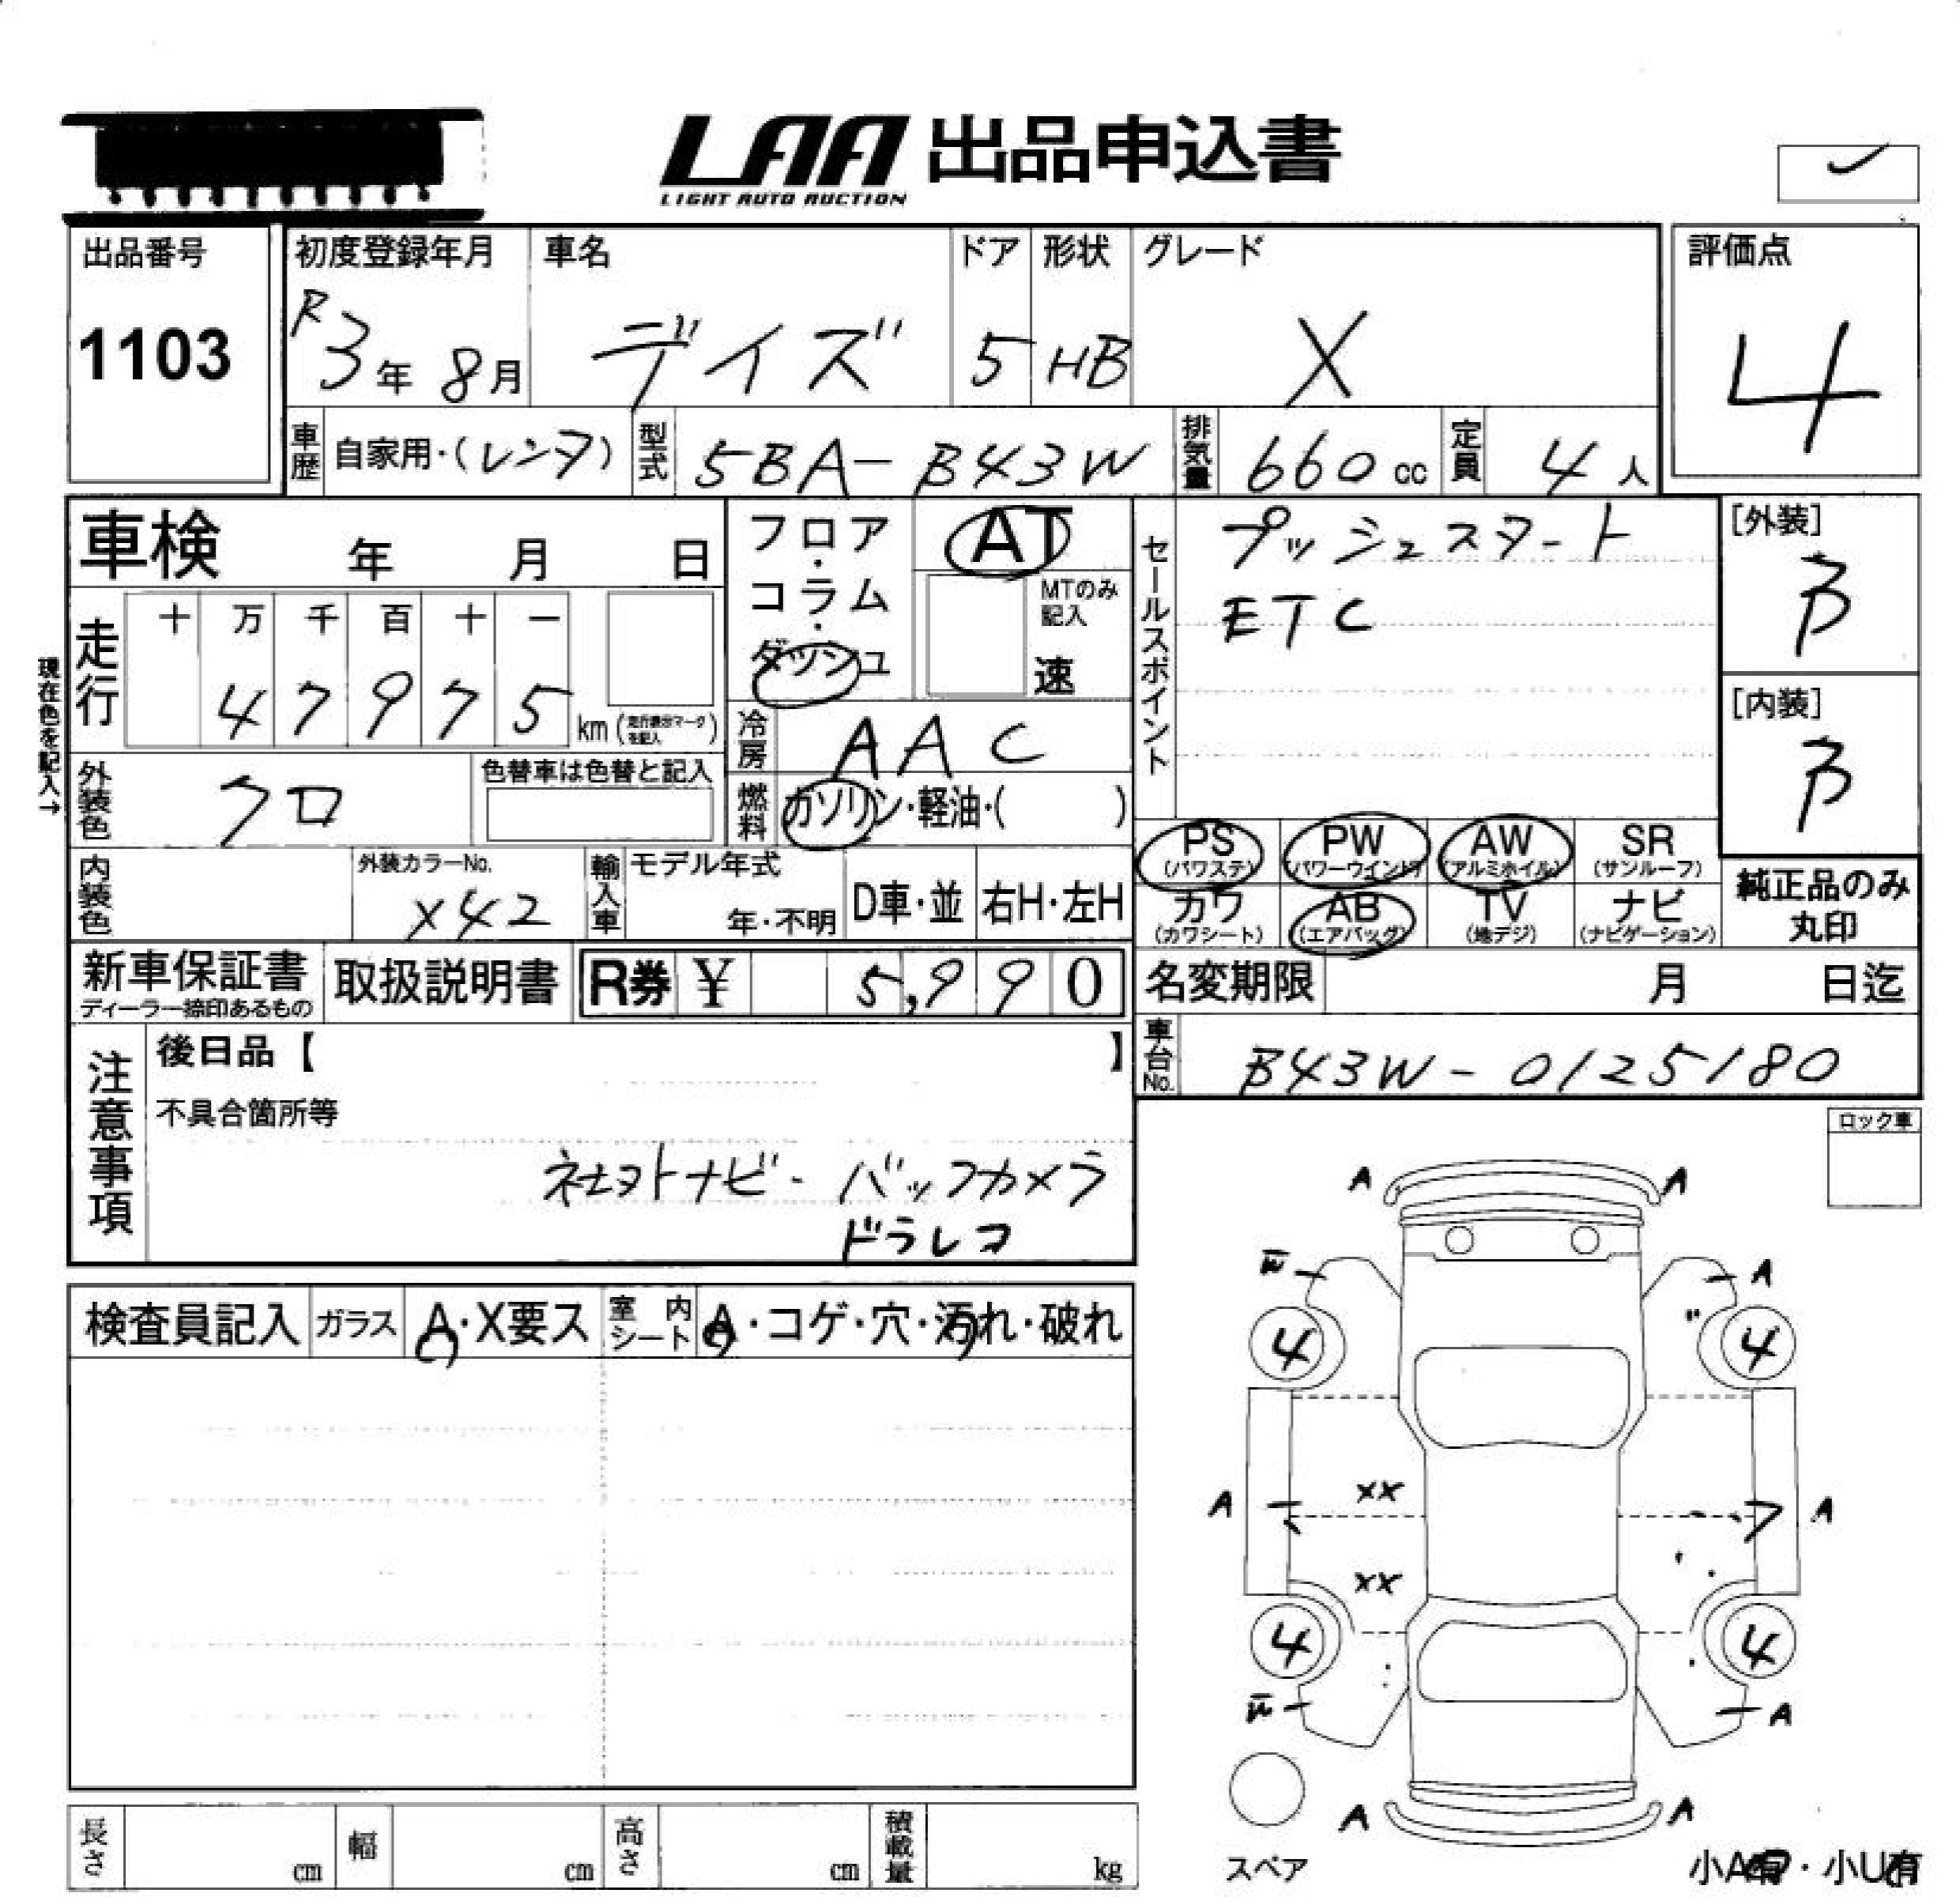 LAA 出品申込書
LIGHT AUTO AUCTION
出品番号
1103
初度登録年月
R3年 8月
車名
デイズ
ドア
5
形状
HB
グレード
X
評価点
4
車歴 自家用・(レンタ)
型式 5BA-B43W
排気量 660 cc
定員 4人
車検 年 月 日
フロア・コラム・ダッシュ
AT
MTのみ記入
速
セールスポイント
プッシュスタート
ETC
[外装]
B
[内装]
B
走行
十 万 千 百 十 一
4 7 9 7 5 km (走行表示マークを記入)
現在色を記入→
冷房 AAC
外装色 クロ
色替車は色替と記入
燃料 ガソリン・軽油・( )
PS (パワステ)
PW (パワーウインドウ)
AW (アルミホイル)
SR (サンルーフ)
カワ (カワシート)
AB (エアバッグ)
TV (地デジ)
ナビ (ナビゲーション)
純正品のみ丸印
内装色
外装カラーNo.
X42
輸入車 モデル年式
年・不明
D車・並
右H・左H
新車保証書
ディーラー捺印あるもの
取扱説明書
R券 ¥ 5,990
名変期限 月 日迄
車台No. B43W-0125180
注意事項
後日品【 】
不具合箇所等
社外ナビ・バックカメラ
ドラレコ
ロック車
検査員記入
ガラス A・X要ス
室内シート A・コゲ・穴・汚れ・破れ
A A
W A
4 4
A XX A
XX
4 4
W A
A A
スペア
小A有・小U有
長さ cm
幅 cm
高さ cm
積載量 kg